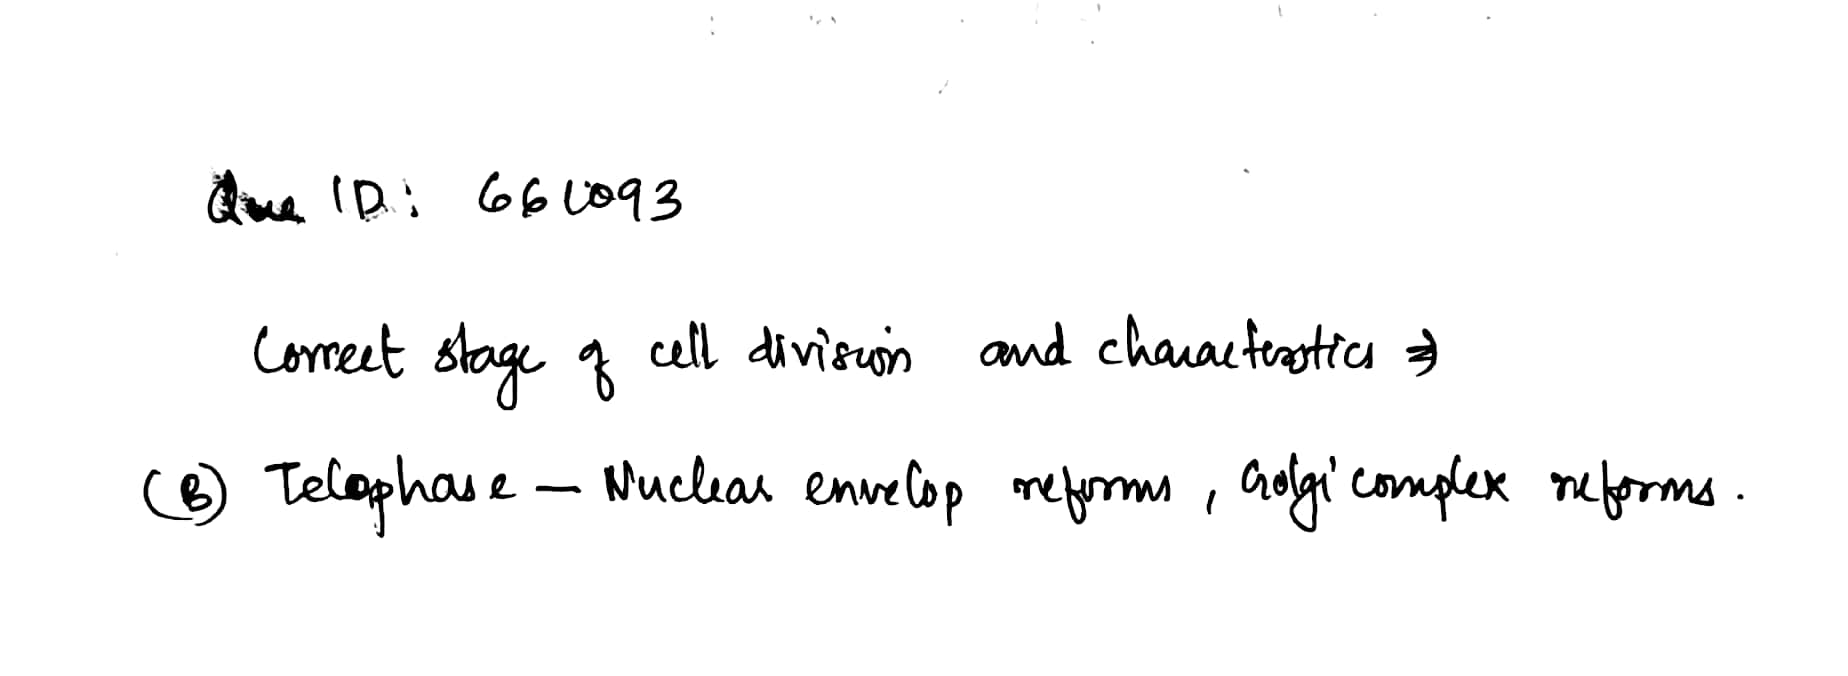 Que ID: 661093
Correct stage of cell division and characterstics ⇒
(B) Telophase – Nuclear envelop reforms, Golgi complex reforms.